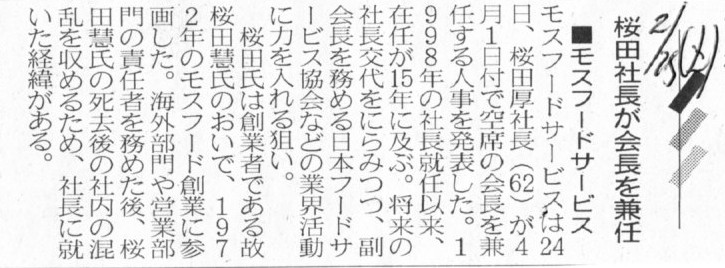 2/25(土)
桜田社長が会長を兼任
■モスフードサービス
モスフードサービスは24
日、桜田厚社長（62）が4
月1日付で空席の会長を兼
任する人事を発表した。1
998年の社長就任以来、
在任が15年に及ぶ。将来の
社長交代をにらみつつ、副
会長を務める日本フードサ
ービス協会などの業界活動
に力を入れる狙い。
桜田氏は創業者である故
桜田慧氏のおいで、197
2年のモスフード創業に参
画した。海外部門や営業部
門の責任者を務めた後、桜
田慧氏の死去後の社内の混
乱を収めるため、社長に就
いた経緯がある。